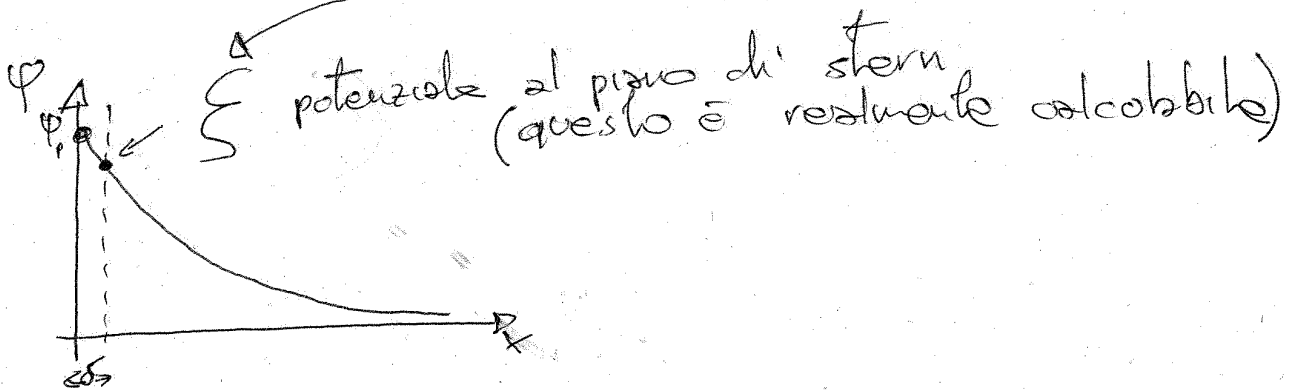 φ
φ₁
ξ potenziale al piano di stern
(questo è realmente calcolabile)
x
δ